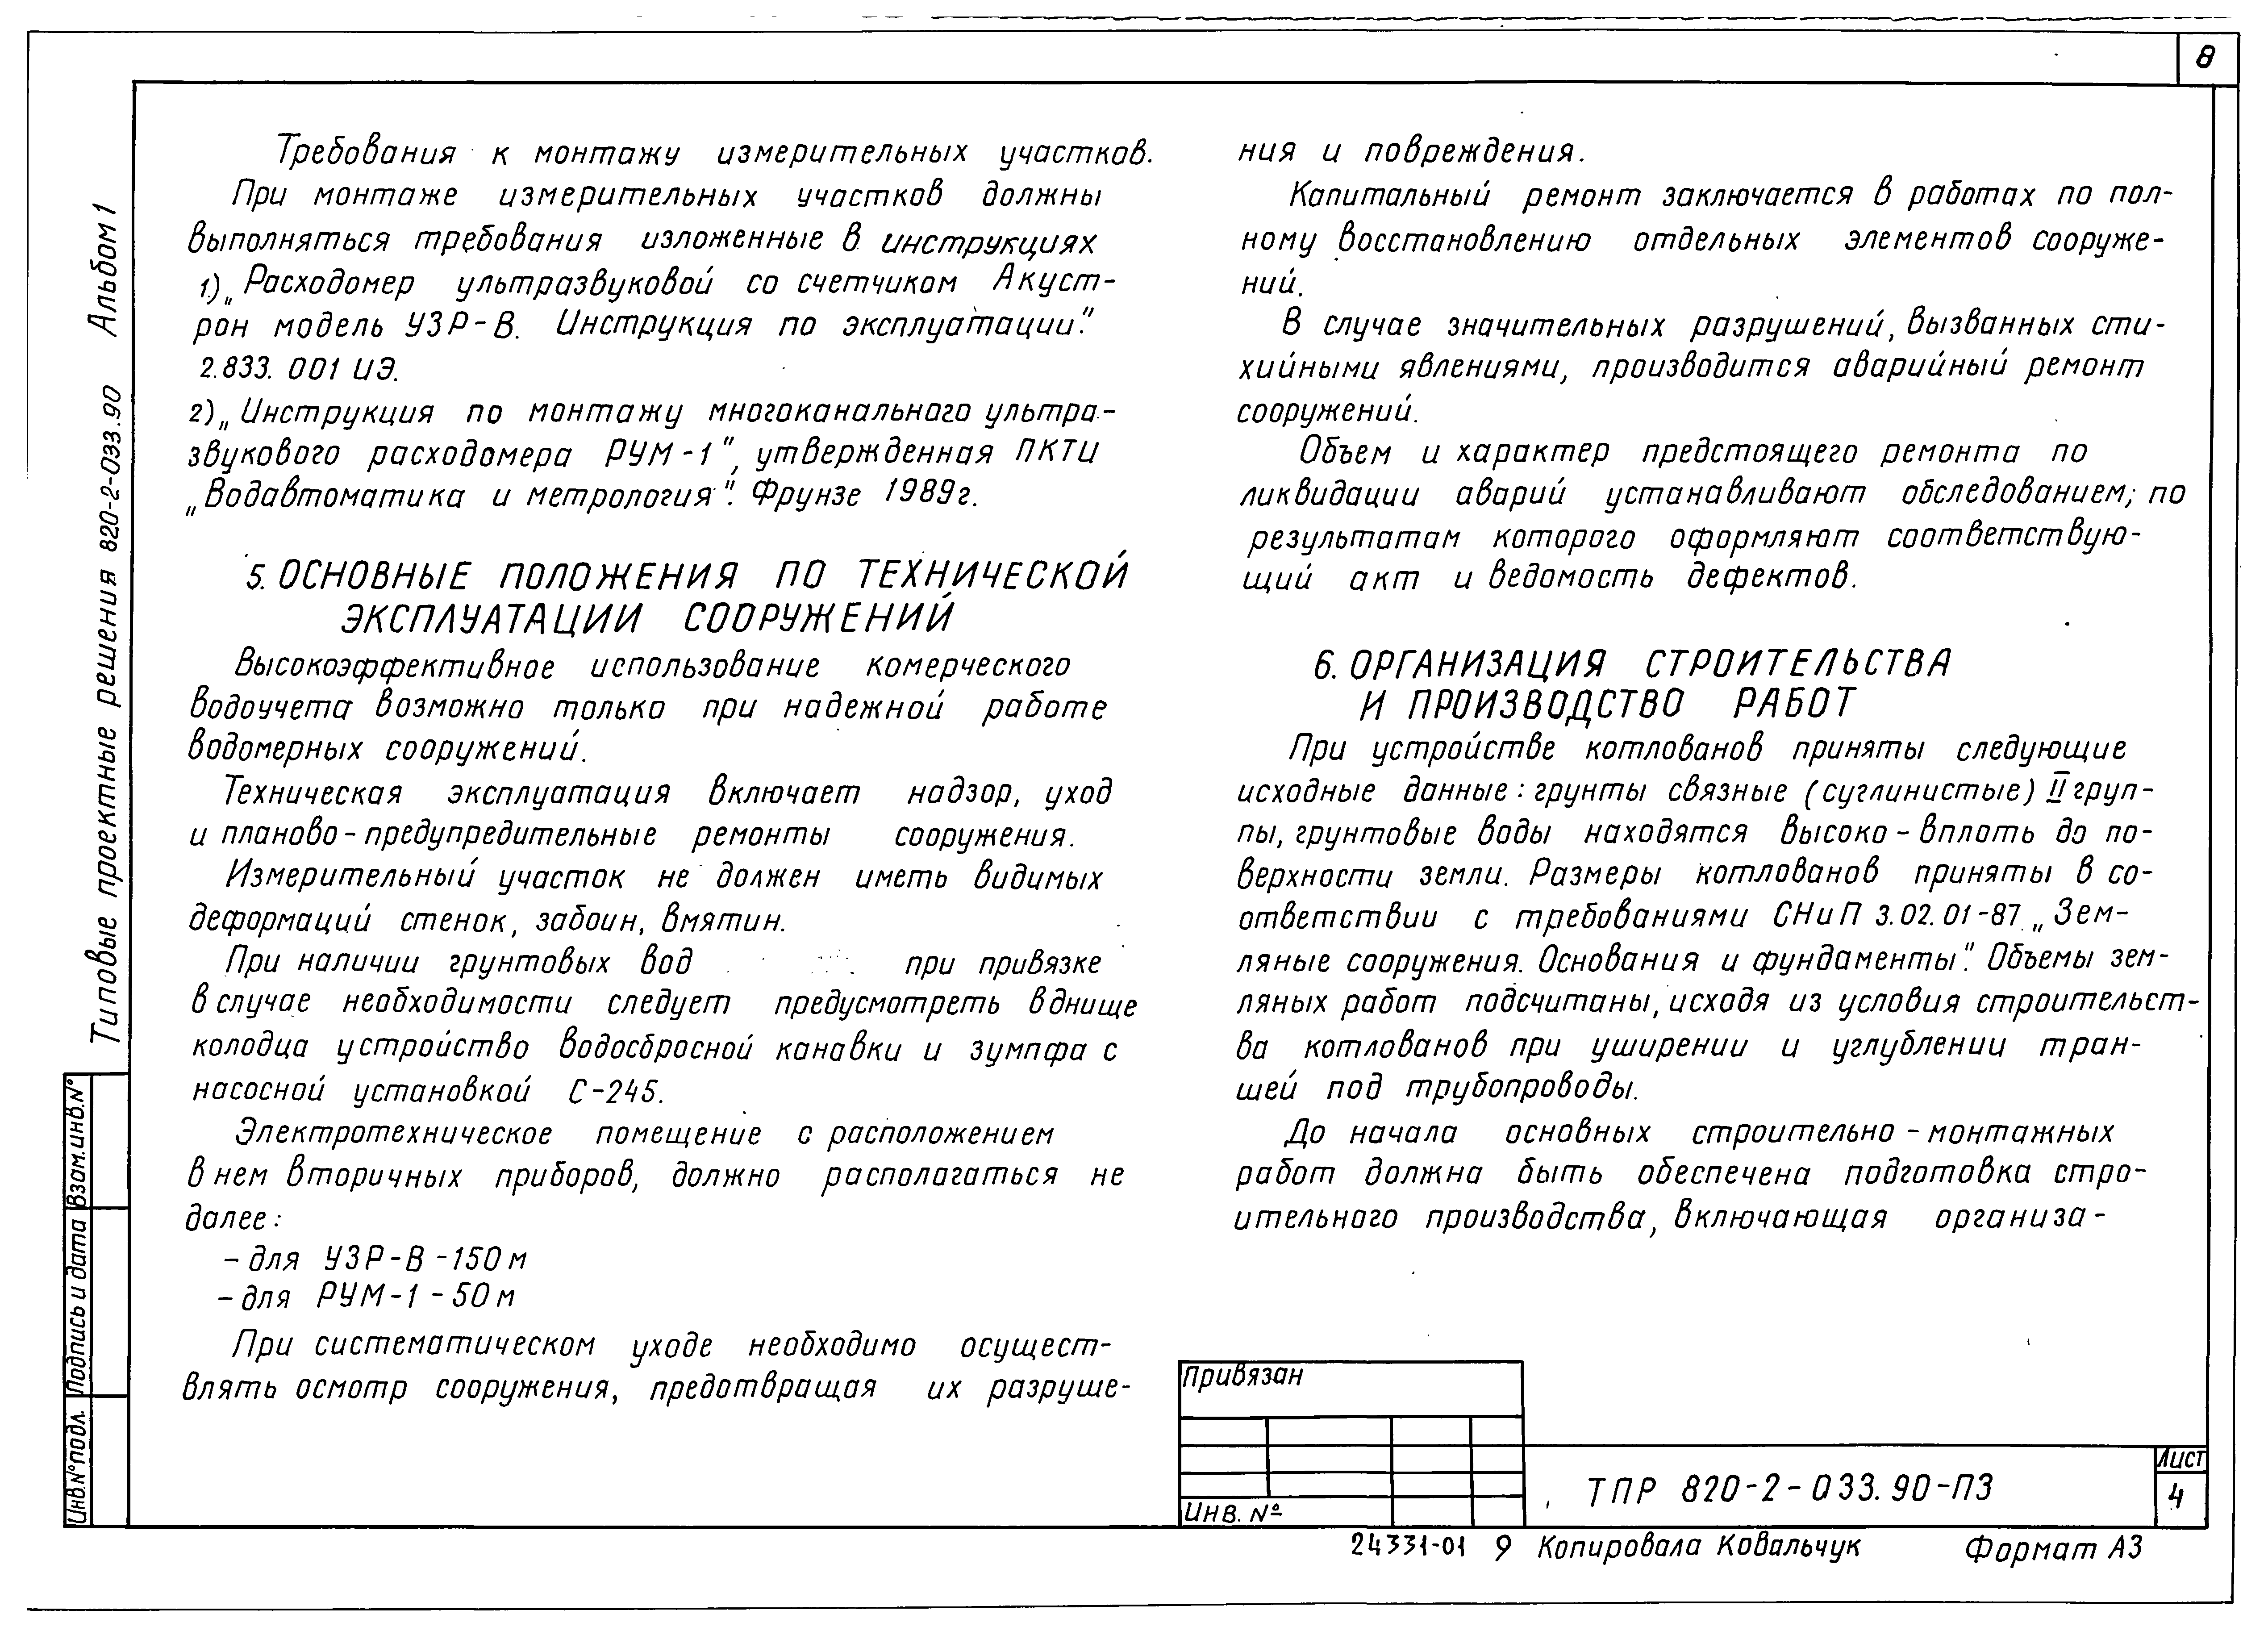 8
Требования к монтажу измерительных участков.
При монтаже измерительных участков должны
выполняться требования изложенные в инструкциях
1) „Расходомер ультразвуковой со счетчиком Акуст-
рон модель УЗР-В. Инструкция по эксплуатации".
2.833. 001 ИЭ.
2) „Инструкция по монтажу многоканального ультра-
звукового расходомера РУМ-1", утвержденная ПКТИ
„Водавтоматика и метрология". Фрунзе 1989г.
5. ОСНОВНЫЕ ПОЛОЖЕНИЯ ПО ТЕХНИЧЕСКОЙ
ЭКСПЛУАТАЦИИ СООРУЖЕНИЙ
Высокоэффективное использование комерческого
водоучета возможно только при надежной работе
водомерных сооружений.
Техническая эксплуатация включает надзор, уход
и планово-предупредительные ремонты сооружения.
Измерительный участок не должен иметь видимых
деформаций стенок, забоин, вмятин.
При наличии грунтовых вод при привязке
в случае необходимости следует предусмотреть в днище
колодца устройство водосбросной канавки и зумпфа с
насосной установкой С-245.
Электротехническое помещение с расположением
в нем вторичных приборов, должно располагаться не
далее:
- для УЗР-В -150 м
- для РУМ-1 - 50 м
При систематическом уходе необходимо осущест-
влять осмотр сооружения, предотвращая их разруше-
ния и повреждения.
Капитальный ремонт заключается в работах по пол-
ному восстановлению отдельных элементов сооруже-
ний.
В случае значительных разрушений, вызванных сти-
хийными явлениями, производится аварийный ремонт
сооружений.
Объем и характер предстоящего ремонта по
ликвидации аварий устанавливают обследованием; по
результатам которого оформляют соответствую-
щий акт и ведомость дефектов.
6. ОРГАНИЗАЦИЯ СТРОИТЕЛЬСТВА
И ПРОИЗВОДСТВО РАБОТ
При устройстве котлованов приняты следующие
исходные данные: грунты связные (суглинистые) II груп-
пы, грунтовые воды находятся высоко - вплоть до по-
верхности земли. Размеры котлованов приняты в со-
ответствии с требованиями СНиП 3.02.01-87 „Зем-
ляные сооружения. Основания и фундаменты". Объемы зем-
ляных работ подсчитаны, исходя из условия строительст-
ва котлованов при уширении и углублении тран-
шей под трубопроводы.
До начала основных строительно - монтажных
работ должна быть обеспечена подготовка стро-
ительного производства, включающая организа-
Типовые проектные решения 820-2-033.90 Альбом 1
Взам.инв.№
Подпись и дата
Инв.№подл.
Привязан
Инв. №
ТПР 820-2-033.90-ПЗ
Лист
4
24331-01 9 Копировала Ковальчук Формат А3